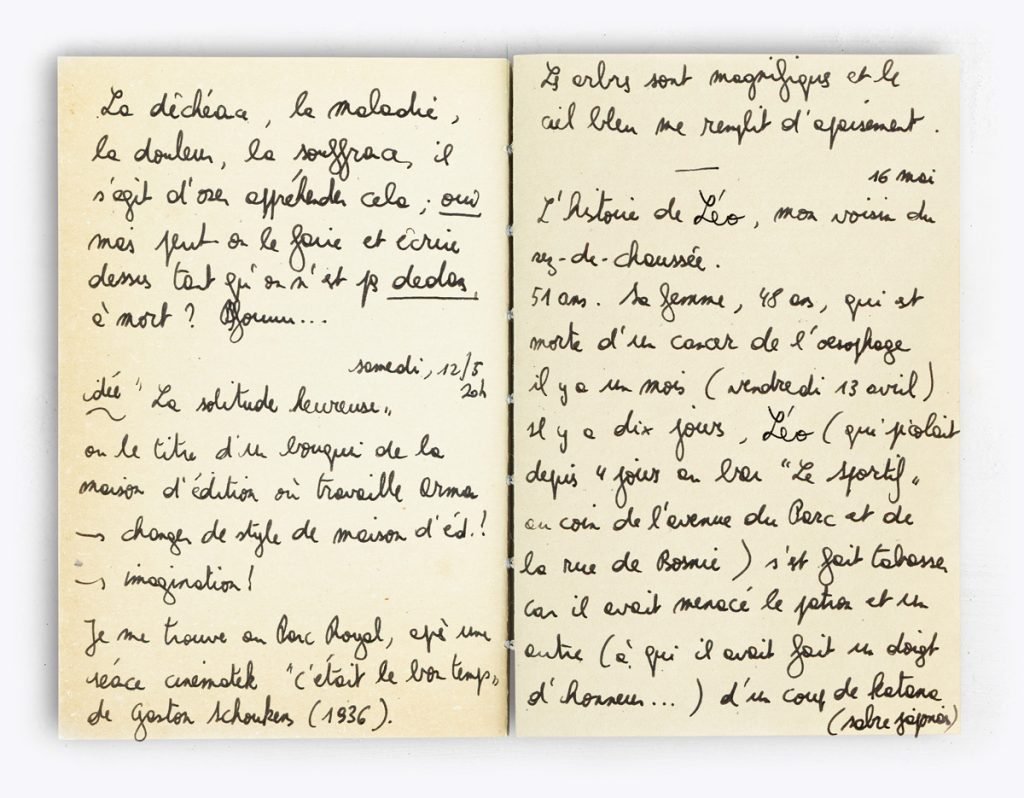 La déchéance, la maladie,
la douleur, la souffrance, il
s'agit d'oser appréhender cela, oui
mais peut-on le faire et écrire
dessus tant qu'on n'est pas dedans,
à mort ? Pfouuu...
samedi, 12/5
20h
idée "La solitude heureuse"
ou le titre d'un bouquin de la
maison d'édition où travaille Arma
→ changer de style de maison d'éd.!
→ imagination!
Je me trouve au Parc Royal, après une
séance cinematek "c'était le bon temps"
de Gaston Schoukens (1936).
Les arbres sont magnifiques et le
ciel bleu me remplit d'apaisement.
—
16 mai
L'histoire de Léo, mon voisin du
rez-de-chaussée.
51 ans. Sa femme, 48 ans, qui est
morte d'un cancer de l'oesophage
il y a un mois (vendredi 13 avril)
Il y a dix jours, Léo (qui picolait
depuis 4 jours au bar "Le sportif"
au coin de l'avenue du Parc et de
la rue de Bosnie) s'est fait tabasser
car il avait menacé le patron et un
autre (à qui il avait fait un doigt
d'honneur...) d'un coup de katana
(sabre japonais)